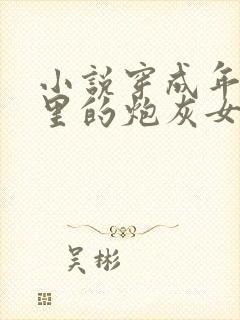 小说穿成年
里的炮灰女
吴彬